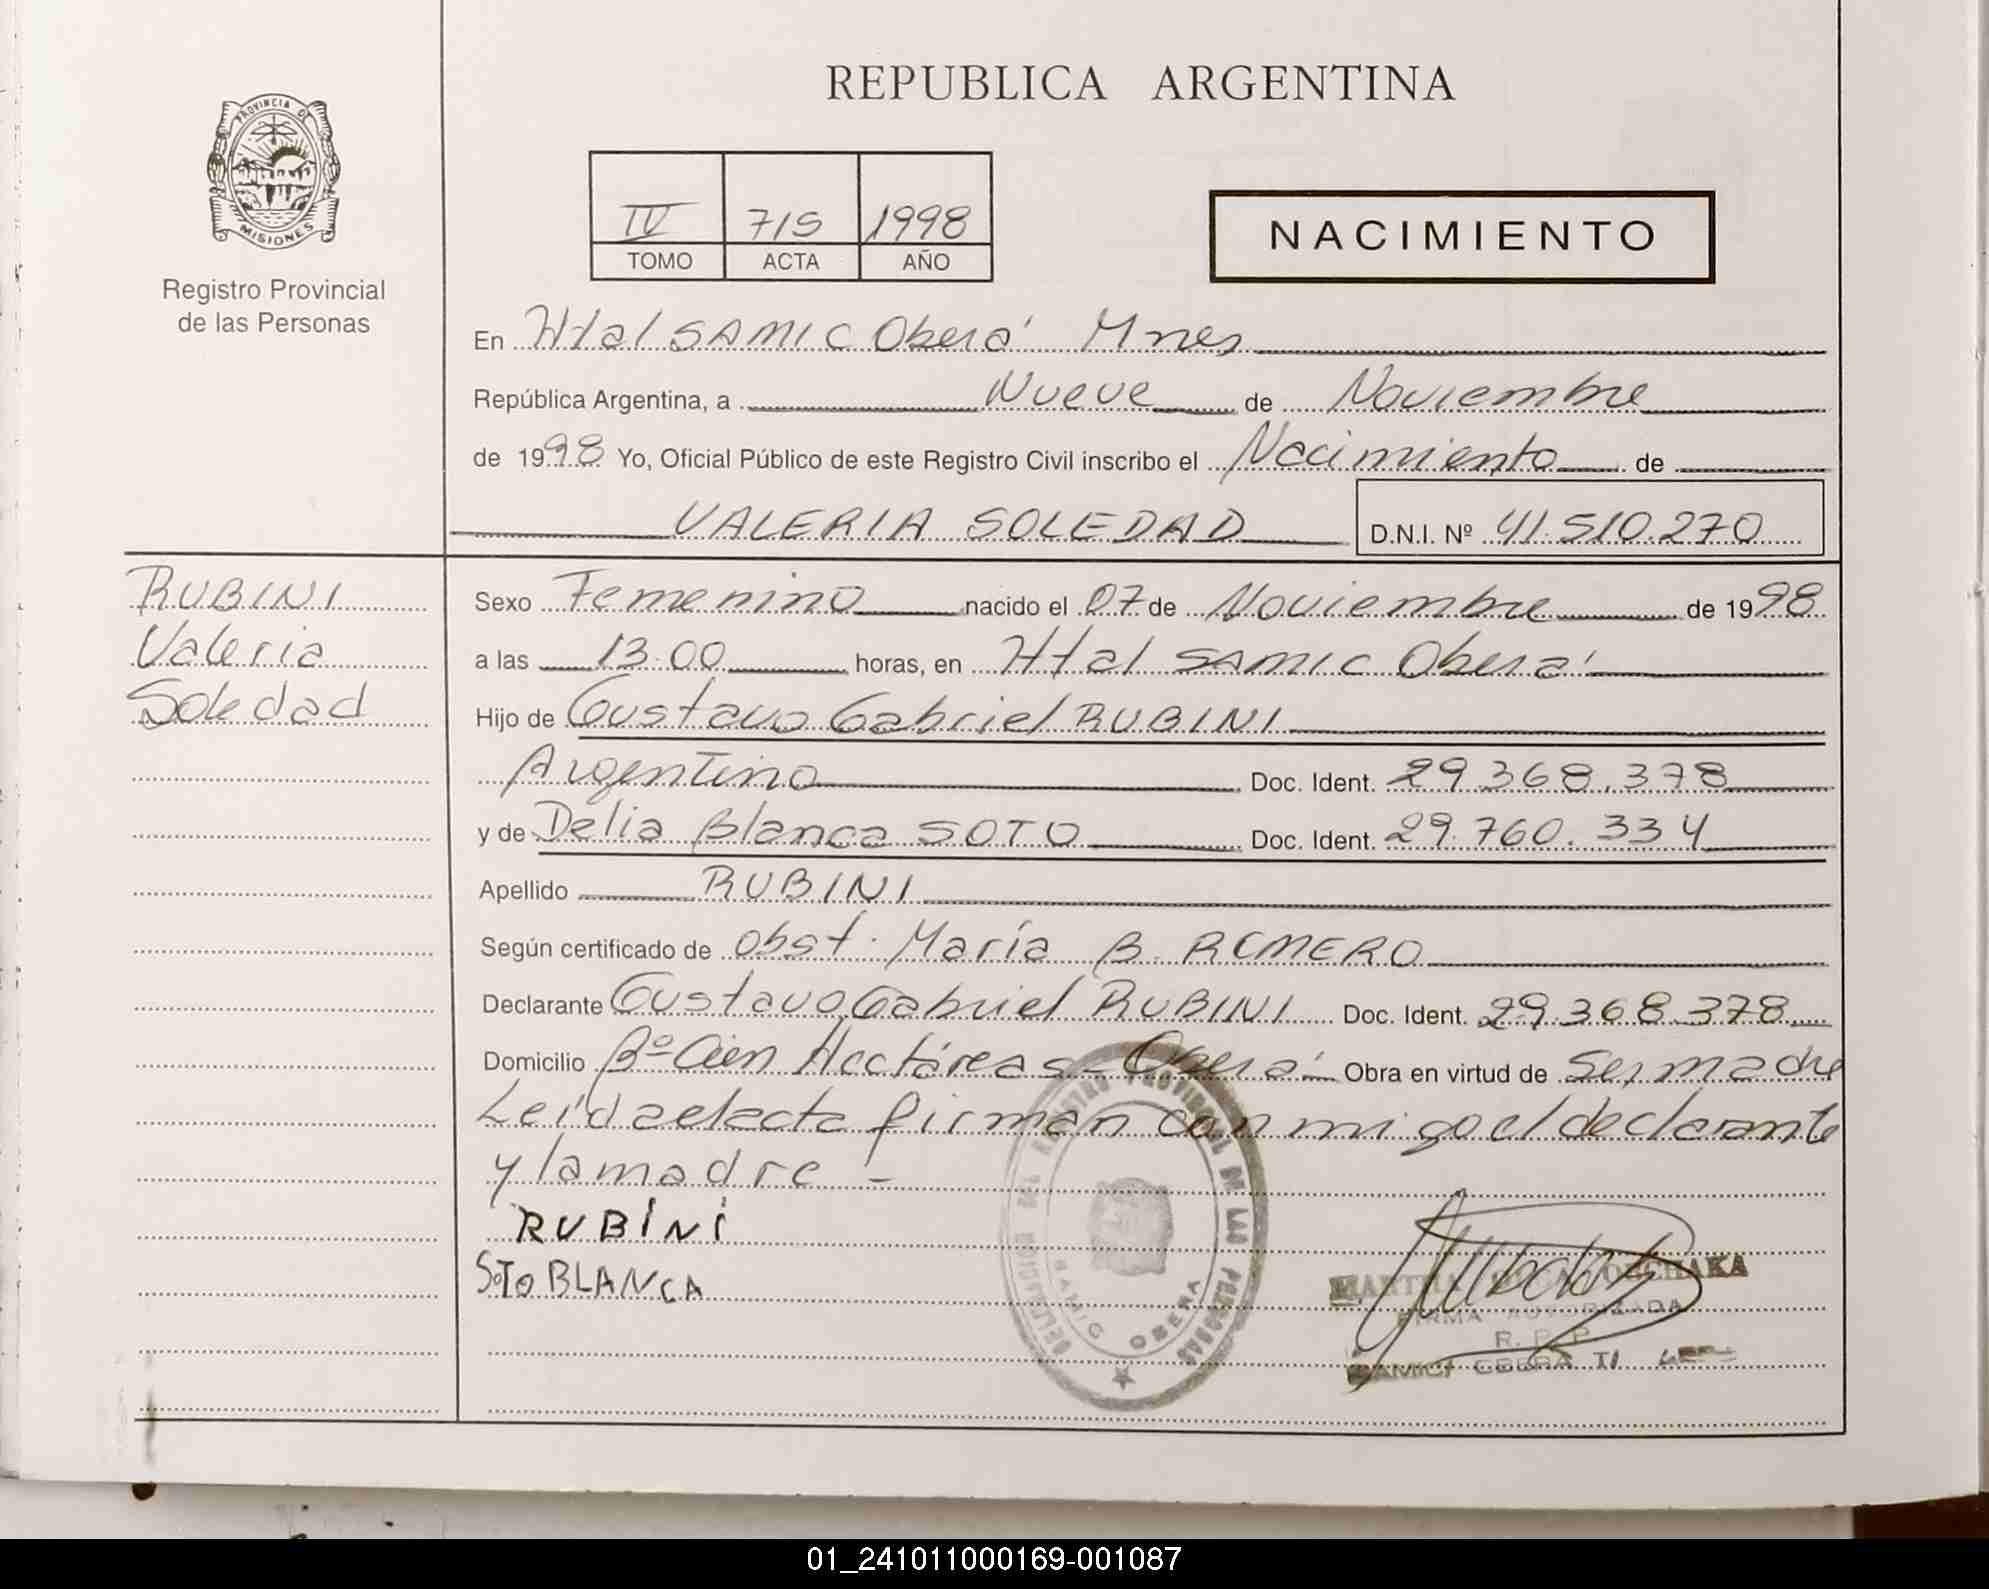 REPUBLICA ARGENTINA
PROVINCIA DE
MISIONES
Registro Provincial
de las Personas
IV 715 1998
TOMO ACTA AÑO
NACIMIENTO
En Htal SAMIC Oberá Mnes
República Argentina, a Nueve de Noviembre
de 1998 Yo, Oficial Público de este Registro Civil inscribo el Nacimiento de
VALERIA SOLEDAD D.N.I. Nº 41.510.270
RUBINI
Valeria
Soledad
Sexo Femenino nacido el 07 de Noviembre de 1998
a las 13.00 horas, en Htal SAMIC Oberá
Hijo de Gustavo Gabriel RUBINI
Argentino Doc. Ident. 29.368.378
y de Delia Blanca SOTO Doc. Ident. 29.760.334
Apellido RUBINI
Según certificado de Obst. María B. ROMERO
Declarante Gustavo Gabriel RUBINI Doc. Ident. 29.368.378
Domicilio Bº Cien Hectáreas - Oberá Obra en virtud de Ser madre
Leída el acta firman conmigo el declarante
y la madre -
RUBINI
SOTO BLANCA
REGISTRO PROVINCIAL DE LAS PERSONAS
SAMIC OBERA
MARTHA
FIRMA AUTORIZADA
R. P. P.
SAMIC OBERA
01_241011000169-001087